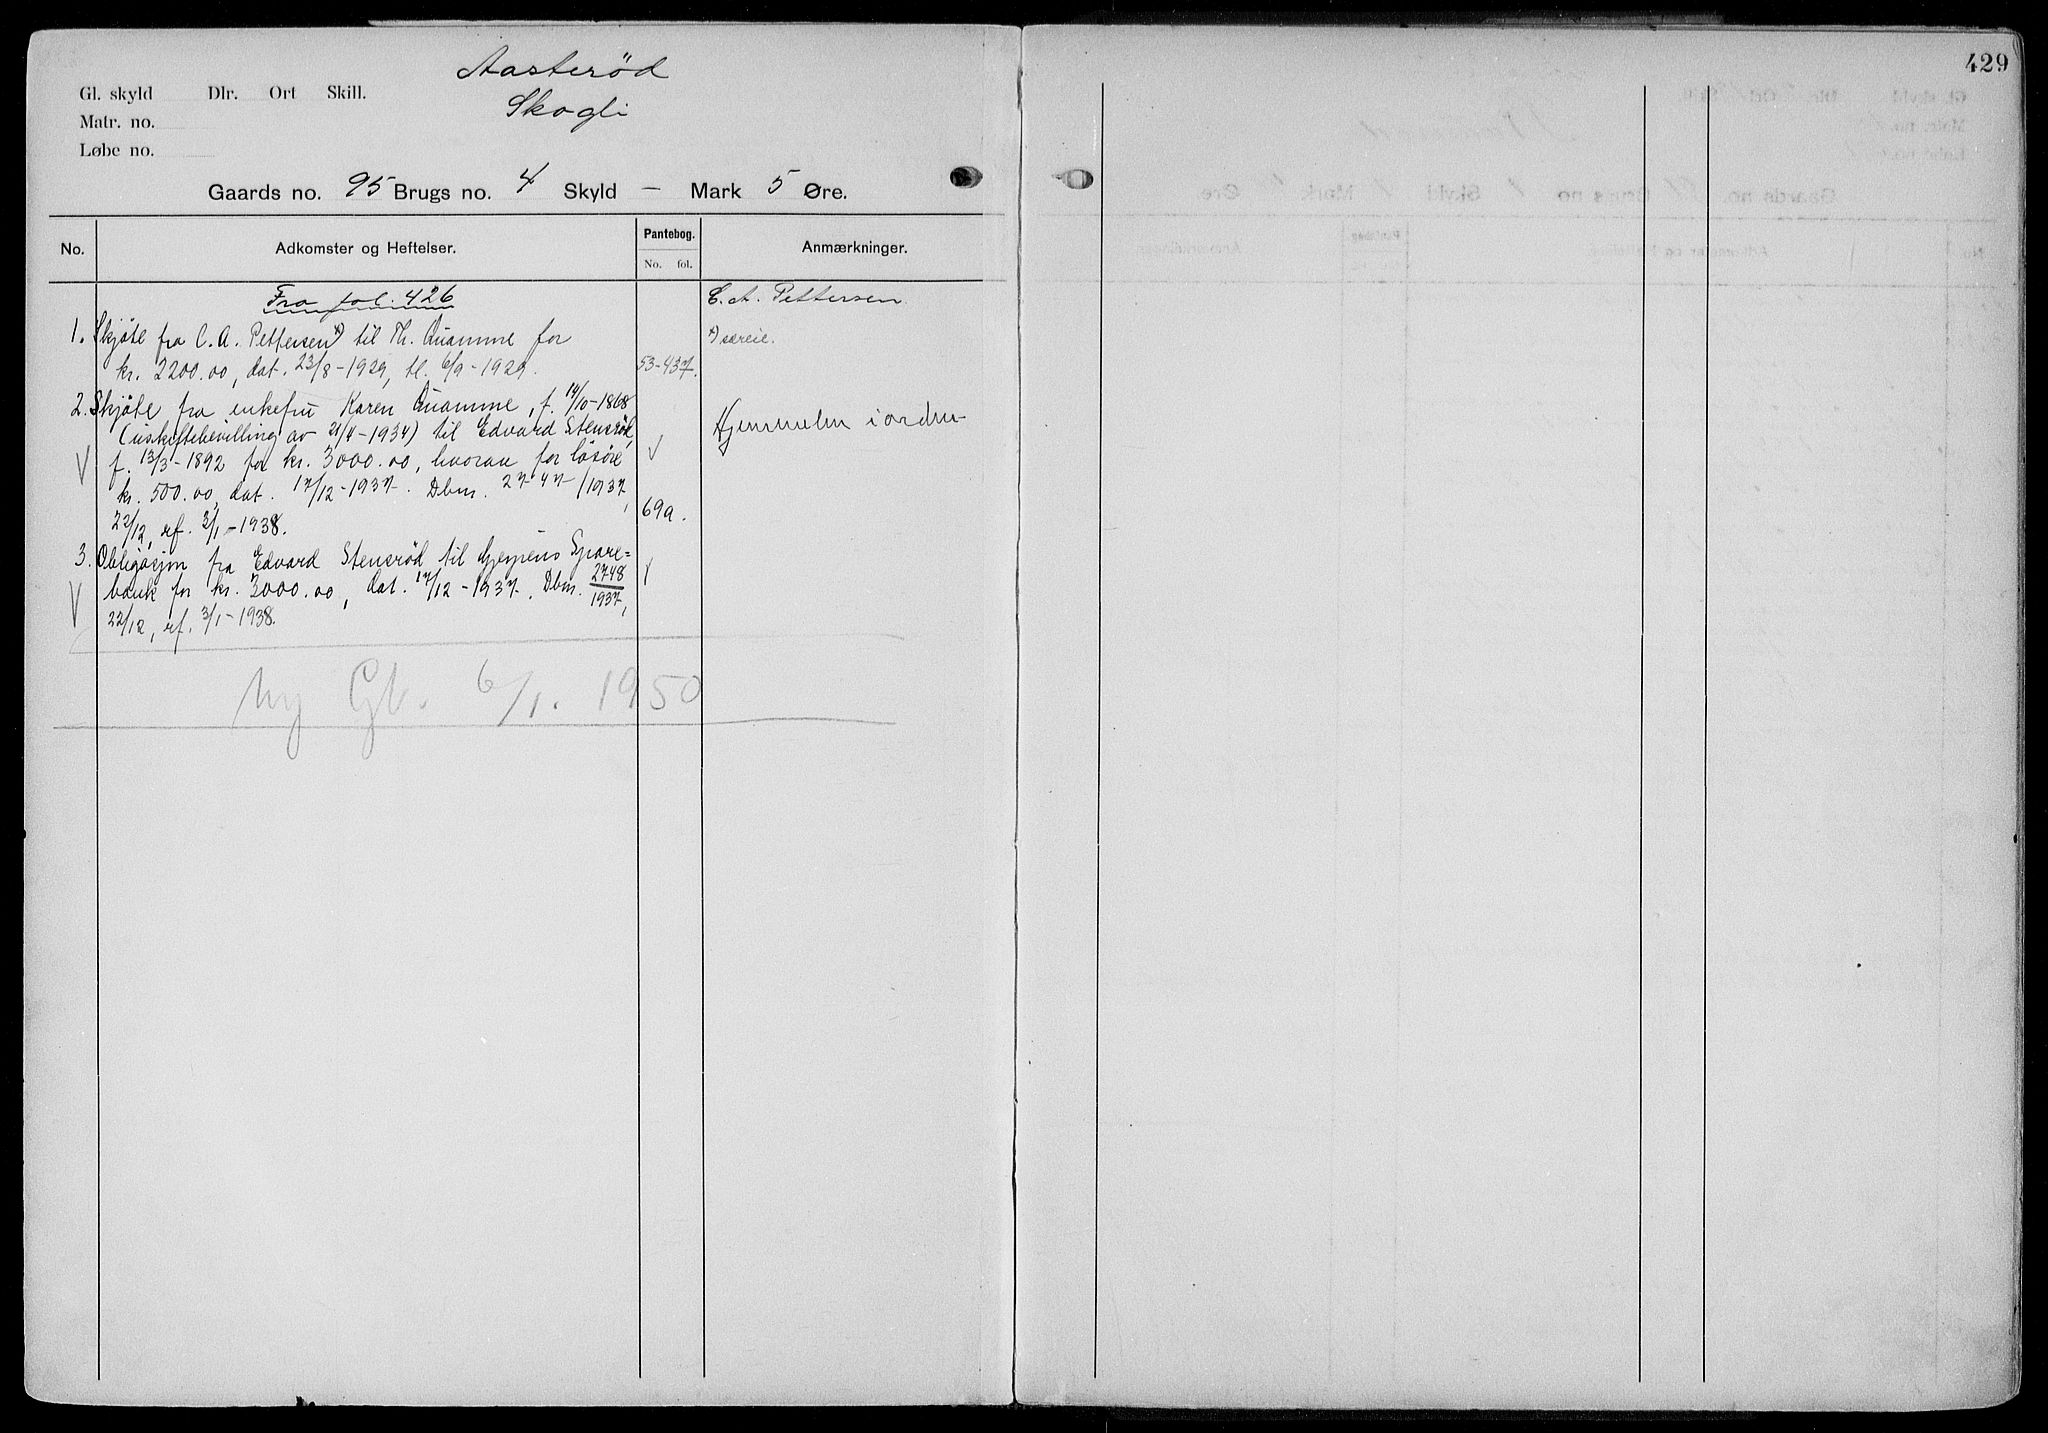 429
Aasterød
Skogli
Gl. skyld Dlr. Ort Skill.
Matr. no.
Løbe no.
Gaards no. 95 Brugs no. 4 Skyld — Mark 5 Øre.
No. Adkomster og Heftelser. Pantebog. No. fol. Anmærkninger.
Fra fol. 426 C. A. Pettersen
1. Skjøte fra C. A. Pettersen *) til Th. Quamme for *) særeie.
kr. 2200.00, dat. 23/8-1929, tl. 6/9-1929. 53-437.
2. Skjøte fra enkefru Karen Quamme, f. 14/10-1868
(uskiftebevilling av 21/4-1934) til Edvard Stensrød, Hjemmelen i orden
f. 13/3-1892 for kr. 3000.00, hvorav for løsøre
kr. 500.00, dat. 17/12-1937. Dbnr. 2747/1937,
22/12, rf. 3/1-1938. 69a.
3. Obligasjon fra Edvard Stensrød til Gjerpens Spare=
bank for kr. 3000.00, dat. 17/12-1937. Dbnr. 2748/1937,
22/12, rf. 3/1-1938.
Ny Gb. 6/1. 1950